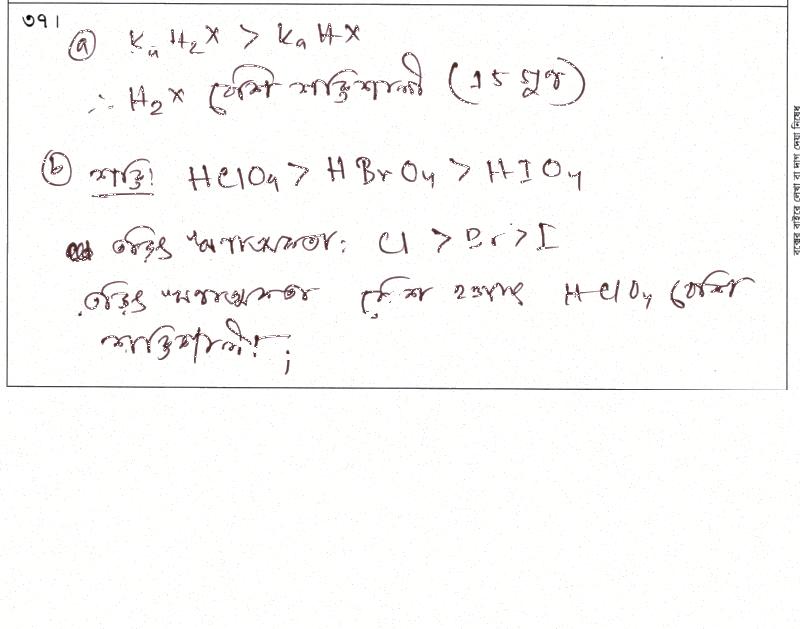 ৩৭।
(a) Ka H₂X > Ka HX
∴ H₂X বেশি শক্তিশালী (15 গুন)
(b) শক্তি: HClO₄ > HBrO₄ > HIO₄
তড়িৎ ঋণাত্মকতা: Cl > Br > I
তড়িৎ ঋণাত্মকতা বেশি হওয়ায় HClO₄ বেশি
শক্তিশালী।
বক্সের বাইরে লেখা বা দাগ দেয়া নিষেধ